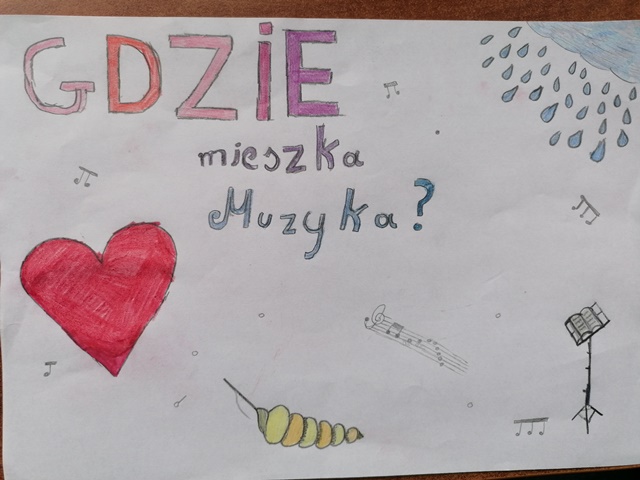 GDZiE
mieszka
Muzyka?